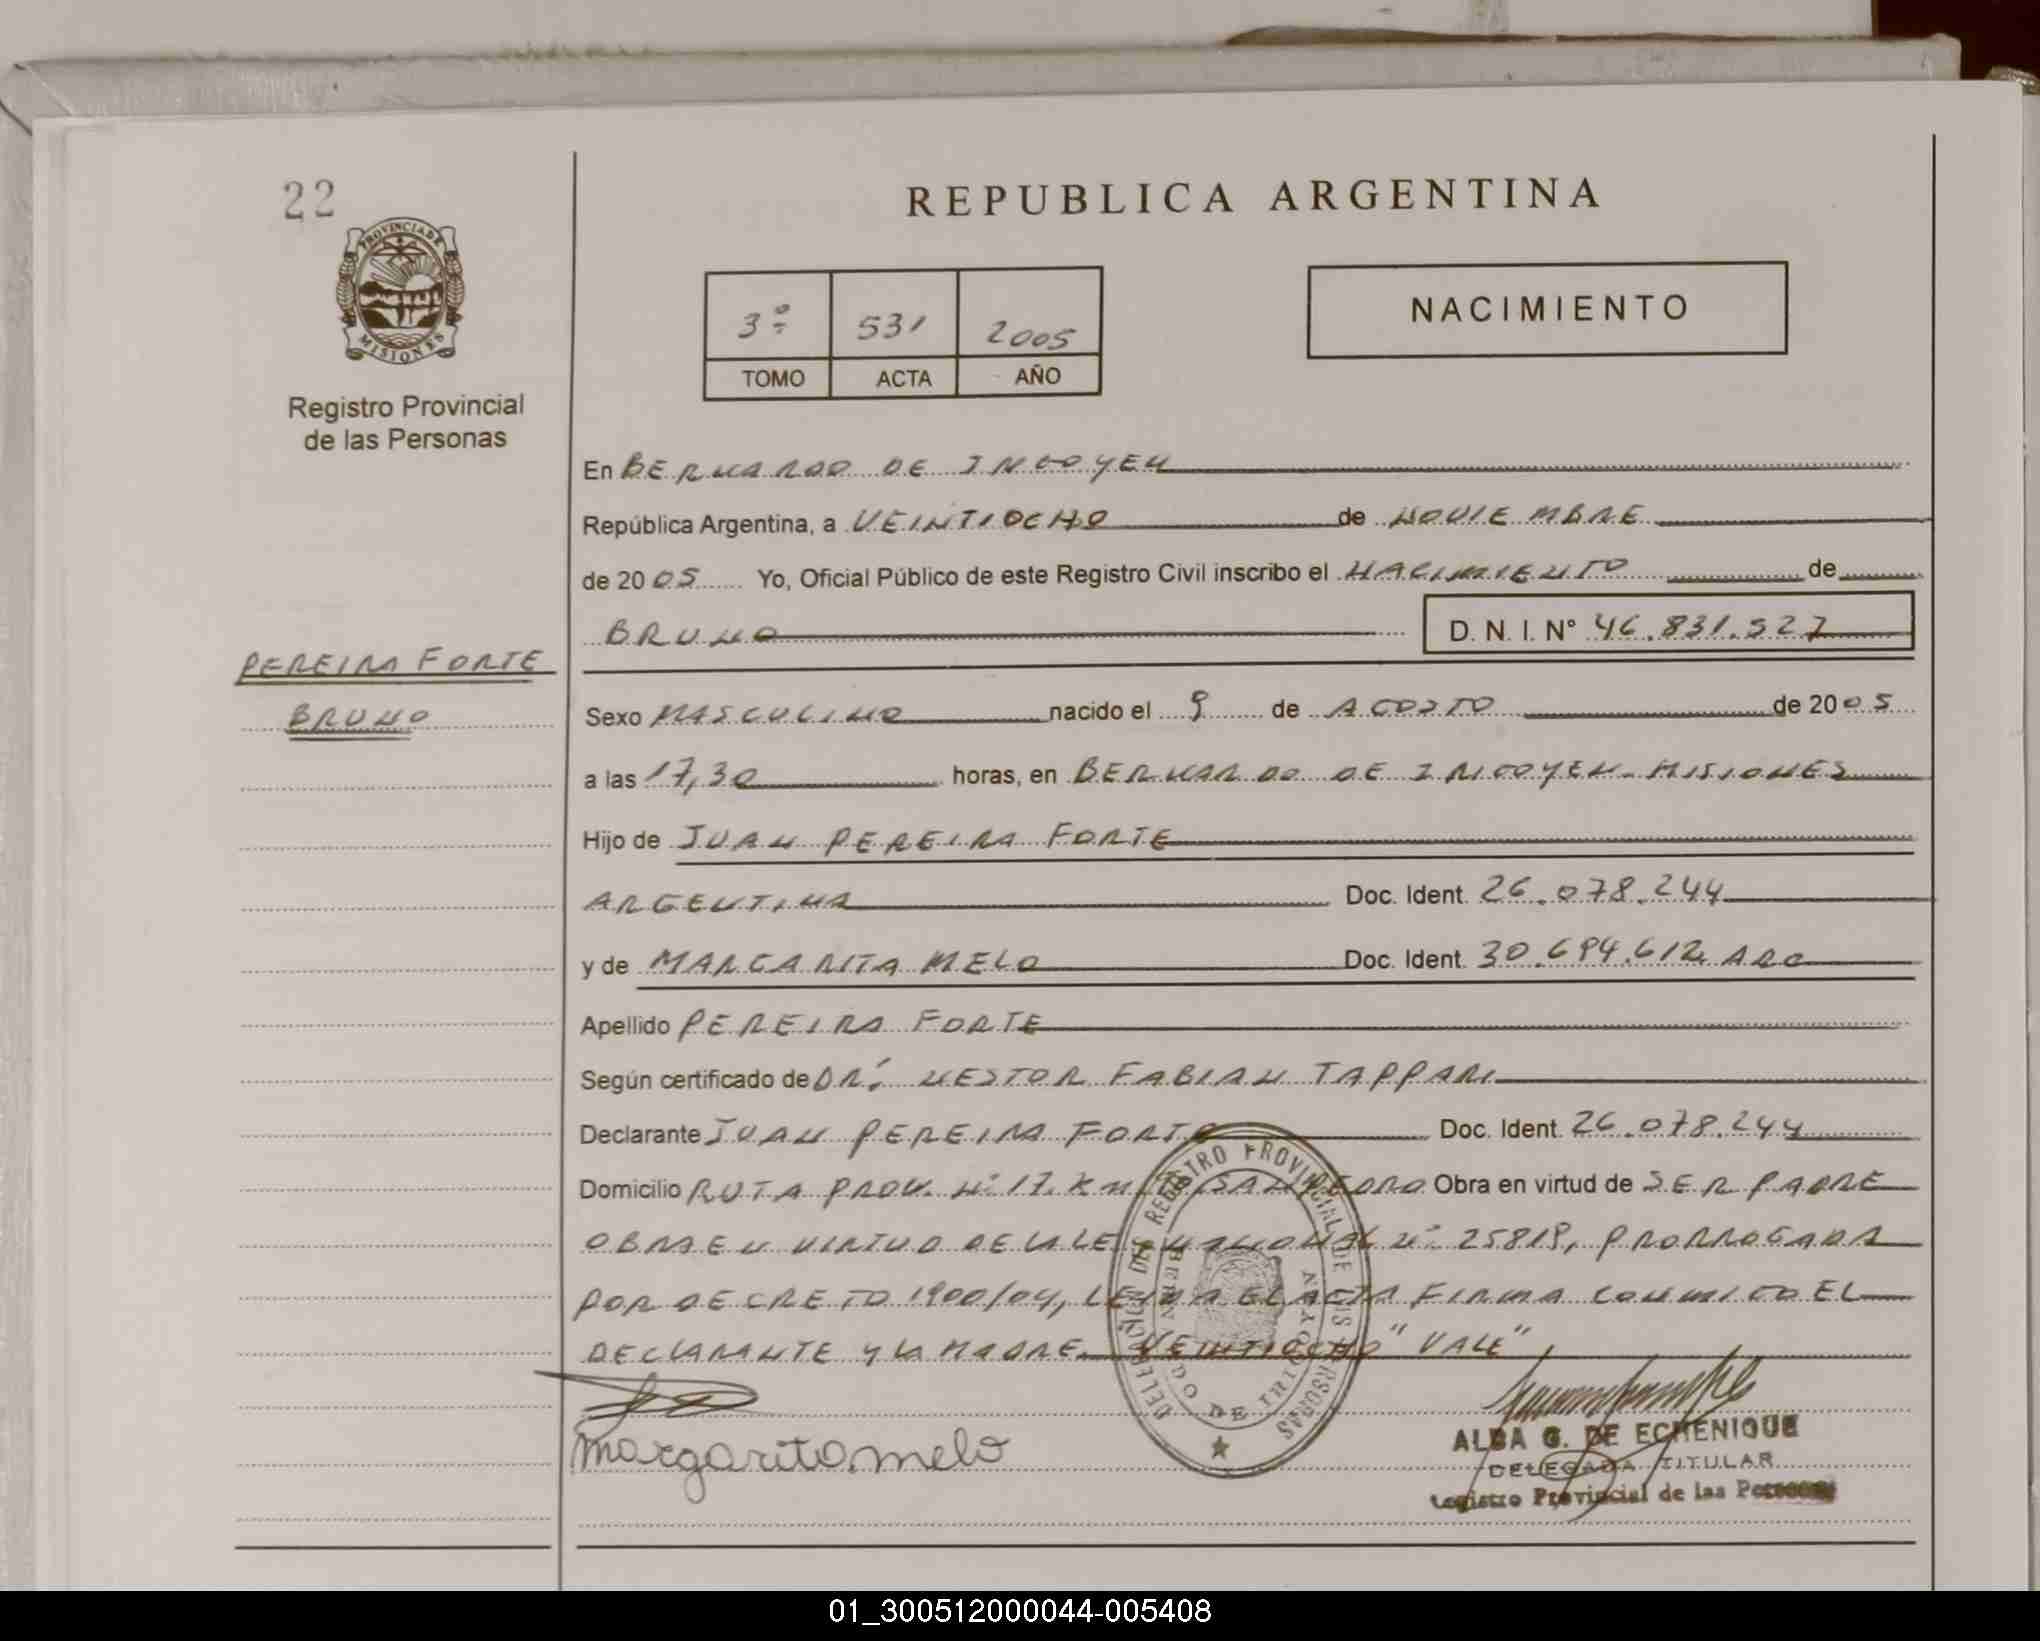 22
PROVINCIA DE
MISIONES
Registro Provincial
de las Personas
REPUBLICA ARGENTINA
3º 531 2005
TOMO ACTA AÑO
NACIMIENTO
En BERNARDO DE IRIGOYEN
República Argentina, a VEINTIOCHO de NOVIEMBRE
de 2005 Yo, Oficial Público de este Registro Civil inscribo el NACIMIENTO de
BRUNO D. N. I. N° 46.831.527
PEREIRA FORTE
BRUNO
Sexo MASCULINO nacido el 9 de AGOSTO de 2005
a las 17,30 horas, en BERNARDO DE IRIGOYEN - MISIONES
Hijo de JUAN PEREIRA FORTE
ARGENTINA Doc. Ident. 26.078.244
y de MARGARITA MELO Doc. Ident. 30.694.612 ARG
Apellido PEREIRA FORTE
Según certificado de DR. NESTOR FABIAN TAPPARI
Declarante JUAN PEREIRA FORTE Doc. Ident. 26.078.244
Domicilio RUTA PROV. Nº 17. Km SAN PEDRO Obra en virtud de SER PADRE
OBRA EN VIRTUD DE LA LEY NACIONAL Nº 25819, PRORROGADA
POR DECRETO 1900/04, LEIDA EL ACTA FIRMA CONMIGO EL
DECLARANTE Y LA MADRE. VEINTIOCHO "VALE"
margarita melo
DELEGACIÓN DEL REGISTRO PROVINCIAL DE LAS PERSONAS
BERNARDO DE IRIGOYEN
ALBA G. DE ECHENIQUE
DELEGADA TITULAR
Registro Provincial de las Personas
01_300512000044-005408